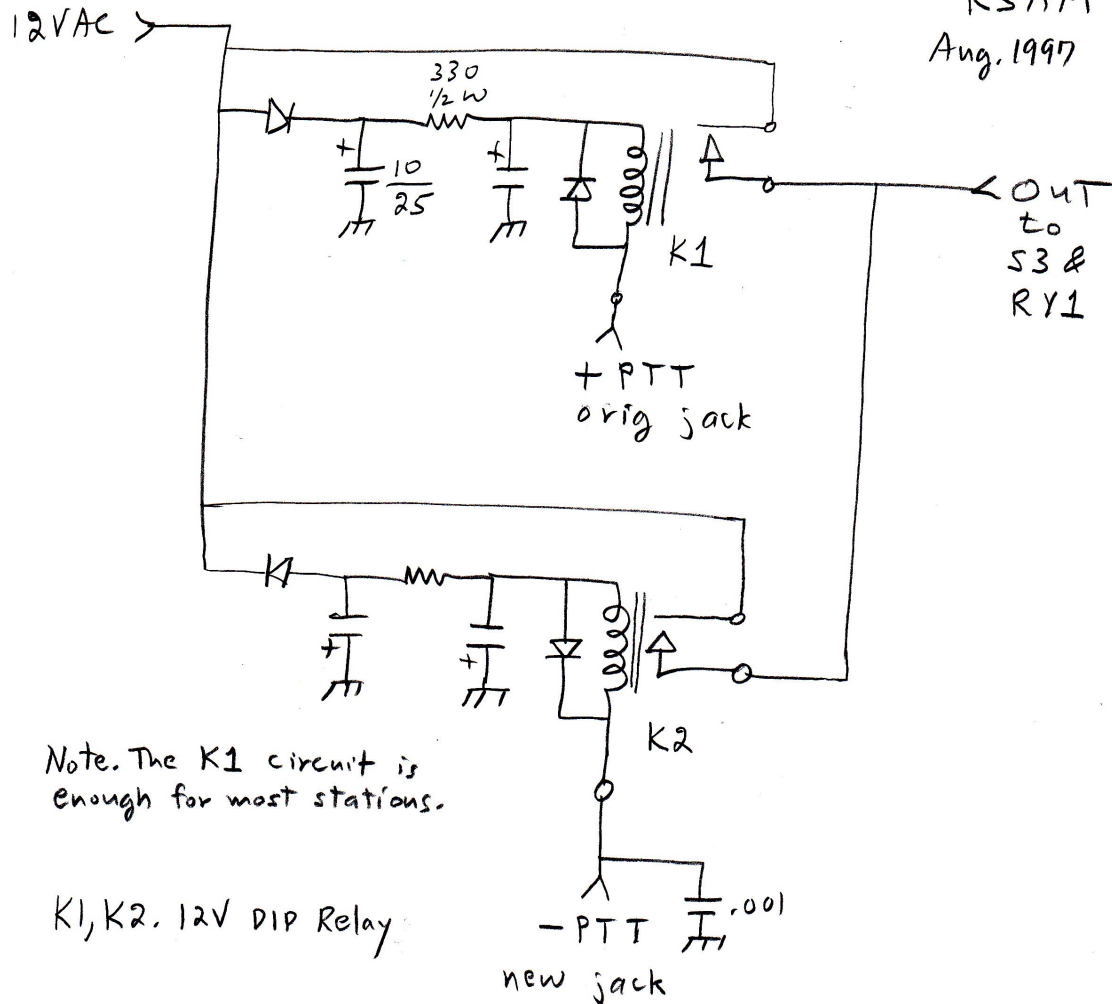 12VAC
Aug. 1997
330
1/2 W
+
10
25
+
K1
OUT
to
S3 &
RY1
+ PTT
orig jack
+
+
K2
Note. The K1 circuit is
enough for most stations.
K1, K2. 12V DIP Relay
.001
- PTT
new jack